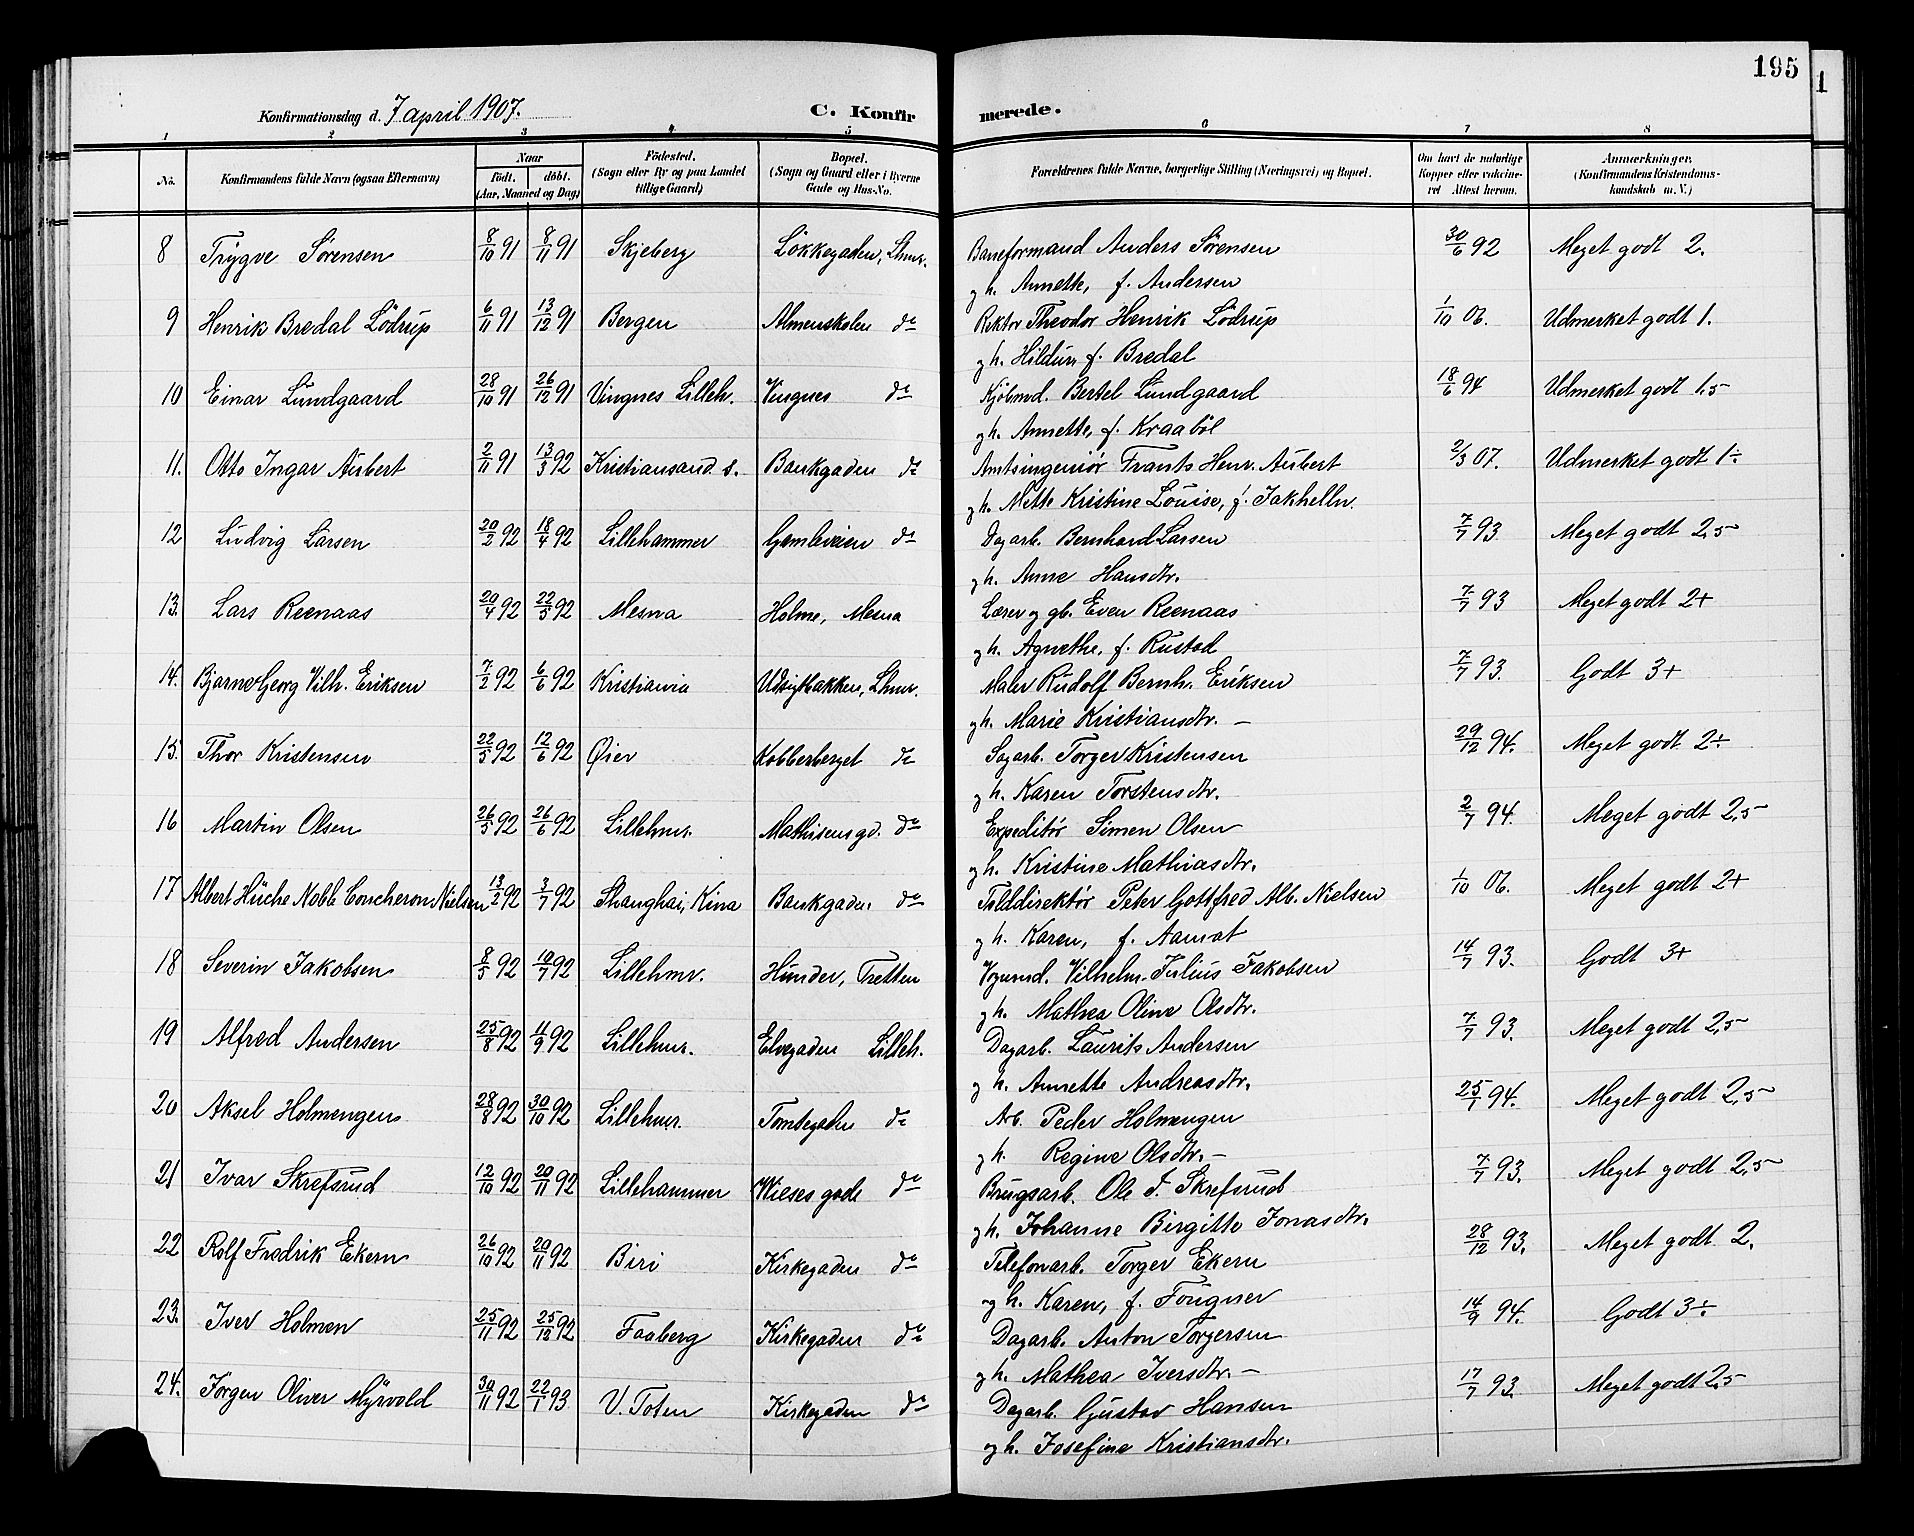 195
1
Konfirmationsdag d. 7 april 1907.
C. Konfirmerede.
1 2 3 4 5 6 7 8
No. Konfirmandens fulde Navn (ogsaa Efternavn) Naar födt. döbt. (Aar, Maaned og Dag) Födested. (Sogn eller By og paa Landet tillige Gaard) Bopæl. (Sogn og Gaard eller i Byerne Gade og Hus-No. Forældrenes fulde Navne, borgerlige Stilling (Næringsvei) og Bopæl. Om havt de naturlige Kopper eller vakcineret Attest herom. Anmærkninger. (Konfirmandens Kristendomskundskab m. V.)
8 Trygve Sørensen 8/10 91 8/11 91 Skjeberg Løkkegaden, Lhmr. Baneformand Anders Sørensen 30/6 92 Meget godt 2.
og h. Annette, f. Andersen
9 Henrik Bredal Lödrup 6/11 91 13/12 91 Bergen Almenskolen do Rektor Theodor Henrik Lödrup 1/10 06. Udmerket godt 1.
og h. Hildur, f. Bredal
10 Einar Lundgaard 28/10 91 26/12 91 Vingnes Lilleh. Vingnes do Kjöbmd. Bertel Lundgaard 18/6 94 Udmerket godt 1,5
og h. Annette, f. Kraaböl
11. Otto Ingar Aubert 2/11 91 13/3 92 Kristiansand s. Bankgaden do Amtsingeniör Frants Henr. Aubert 2/3 07. Udmerket godt 1÷
og h. Mette Kristine Louise, f. Jakhelln.
12 Ludvig Larsen 20/2 92 18/4 92 Lillehammer Gamleveien do Dagarb. Bernhard Larsen 7/7 93 Meget godt 2,5
og h. Anne Hansdtr.
13. Lars Reenaas 20/4 92 22/5 92 Mesna Holme, Mesna Lærer og gb. Even Reenaas 7/7 93 Meget godt 2+
og h. Agnethe, f. Rustad
14. Bjarne Georg Vilh. Eriksen 7/2 92 6/6 92 Kristiania Udsigtbakken, Lhmr. Maler Rudolf Bernh. Eriksen 7/7 93. Godt 3+
og h. Marie Kristiansdtr. -
15. Thor Kristensen 22/5 92 12/6 92 Øier Kobberberget do Sagarb. Torger Kristensen 29/12 94. Meget godt 2÷
og h. Karen Torstensdtr.
16 Martin Olsen 26/5 92 26/6 92 Lillehmr. Mathisensgd. do Expeditör Simen Olsen 2/7 94. Meget godt 2,5
og h. Kristine Mathiasdtr.
17 Albert Huche Noble Concheron Nielsen 13/2 92 3/7 92 Shanghai, Kina Bankgaden do Tolddirektör Peter Gottfred Alb. Nielsen 1/10 06. Meget godt 2+
og h. Karen, f. Aamot
18 Severin Jakobsen 8/5 92 10/7 92 Lillehmr. Hunder, Tretten Vognmd. Vilhelm Julius Jakobsen 14/7 93. Godt 3+
og h. Mathea Oline Olsdtr.
19 Alfred Andersen 25/8 92 11/9 92 Lillehmr. Elvegaden Lilleh. Dagarb. Laurits Andersen 7/7 93. Meget godt 2,5
og h. Annette Andreasdtr.
20 Aksel Holmengen 28/8 92 30/10 92 Lillehmr. Tomtegaden do Arb. Peder Holmengen 25/1 94. Meget godt 2,5
og h. Regine Olsdtr. -
21 Ivar Skrefsrud 12/10 92 20/11 92 Lillehammer Wieses gade do Brugsarb. Ole T. Skrefsrud 7/7 93. Meget godt 2,5
og h. Johanne Birgitte Jonasdtr.
22 Rolf Fredrik Ekern 26/10 92 20/11 92 Biri Kirkegaden do Telefonarb. Torger Ekern 28/12 93. Meget godt 2.
og h. Karen, f. Fougner
23. Iver Holmen 25/11 92 25/12 92 Faaberg Kirkegaden do Dagarb. Anton Torgersen 14/9 94. Godt 3÷
og h. Mathea Iversdtr. -
24. Jörgen Oliver Myrvold 30/11 92 22/1 93 V. Toten Kirkegaden do Dagarb. Gustav Hansen 17/7 93. Meget godt 2,5
og h. Josefine Kristiansdtr.